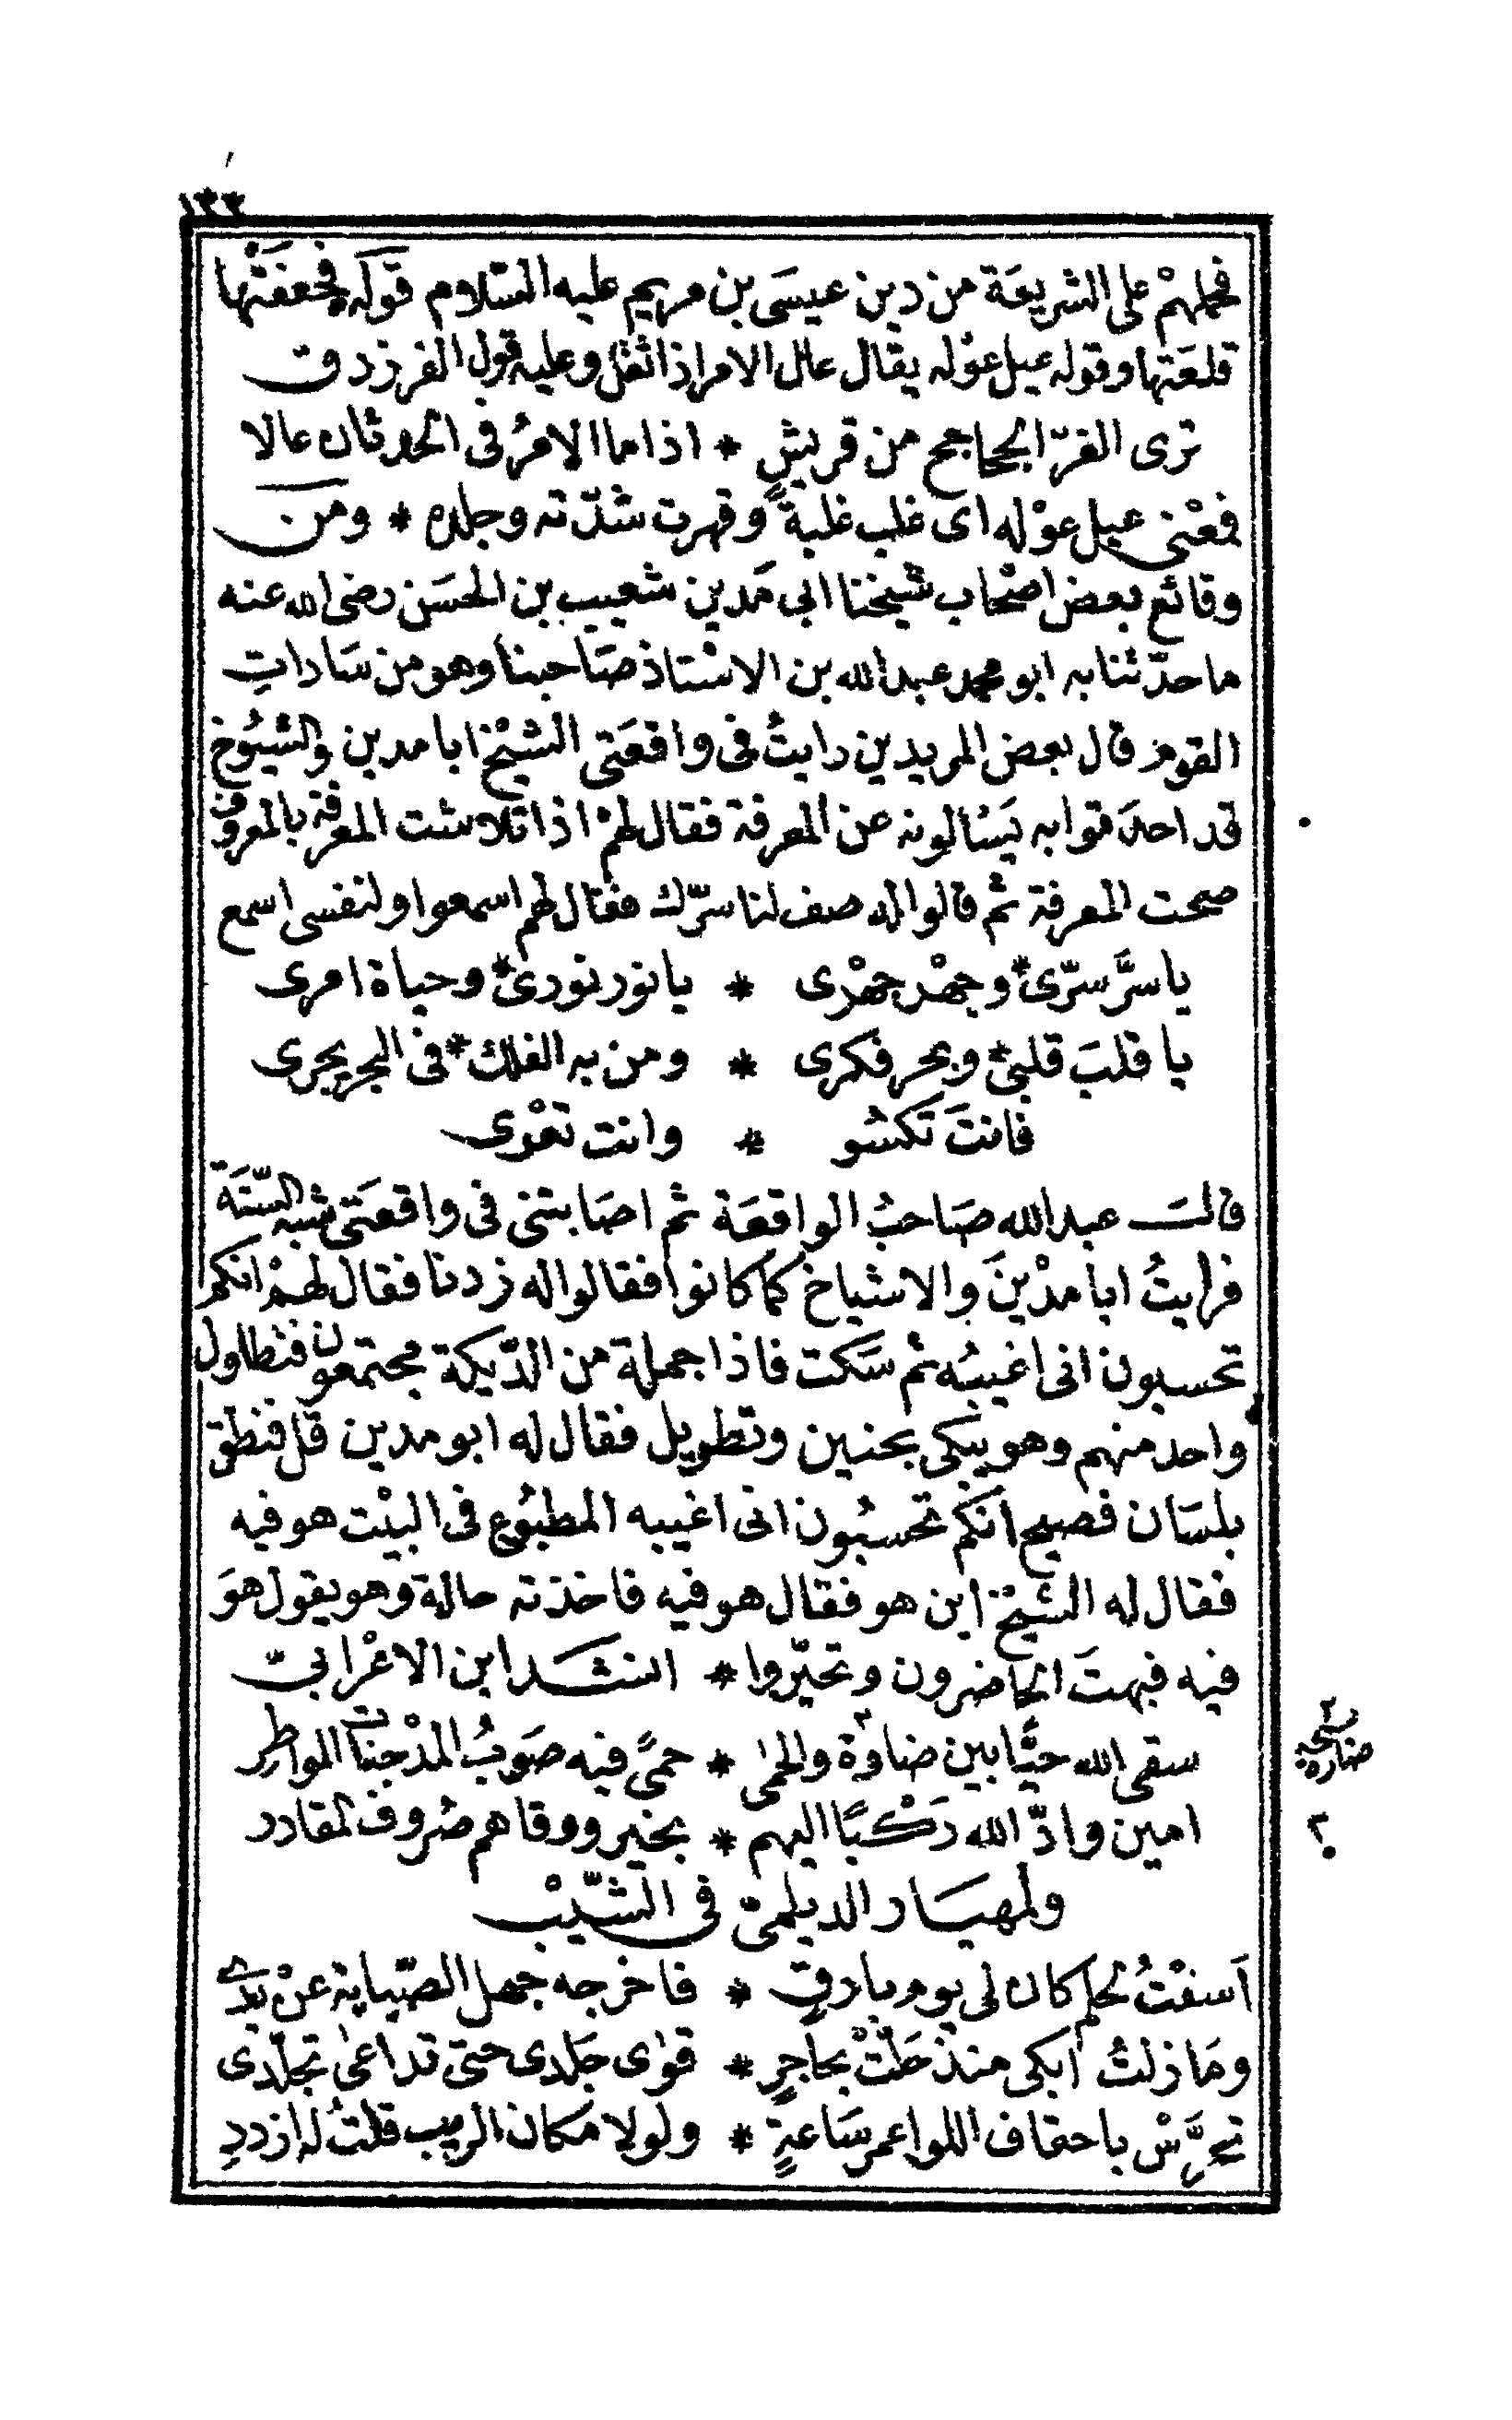 ١٣٣
فحملهمْ على الشريعَة من دين عيسَى بن مريم عليه السّلام قوله فجعفَتْها
قلعَتها وقوله عيل عوْله يقال عال الامر اذا ثقل وعليه قول الفرزدق
ترى الغرّ الجحاجح من قريشٍ * اذا ما الامرُ فى الحدثان عالا
فمعْنى عيل عوْله اى غلب غلبةً وقهرت شدّته وجلده * ومن
وقائع بعض اصْحاب شيخنا ابى مَدين شعيب بن الحسَن رضى الله عنه
ما حدّثنا به ابو محمد عبد الله بن الاسْتاذ صَاحبنا وهو من سَاداتِ
القوم قال بعض المريدين رايتُ فى واقعَتى الشيْخ ابا مدين والشيُوخ
قد احدَقوا به يَسْالونه عن المعرفة فقال لهمْ اذا تلاشت المعرفة بالمعروف
صحت المعرفة ثم قالوا له صف لنا سرّك فقال لهم اسمعوا ولنفسى اسمع
يا سرَّ سرّى * وجهْد جهْدى * يا نور نورى * وحياة امرى
يا قلبَ قلبى * وبحر فكرى * ومن به الفلك * فى البحر يجرى
فانتَ تكسُو * وانت تعْرى
قالـت عبد الله صَاحبُ الواقعَة ثم اصَابتنى فى واقعَتى شبه السّنَة
فرايتُ ابا مدْينَ والاشياخ كما كانوا فقالوا له زدنا فقال لهـمْ انكم
تحسبون انى اغيبُه ثم سَكت فاذا جملة من الدّيكة مجتمعون فتطاول
واحد منهم وهو يبكى بحنين وتطويل فقال له ابو مدين قل فنطق
بلسَان فصيح انكم تحسبُون انى اغيبه المطبُوع فى البيْت هو فيه
فقال له الشيْخ اين هو فقال هو فيه فاخذته حالة وهو يقول هوَ
فيه فبهتَ الحاضرون وتحيّروا * انشـد ابن الاعْرابىّ
سقى الله حيًّا بين ضاوة والحمٰى * حمًى فيه صَوبُ المدْجنات المواطر
امين وادّ الله رَكْبًا اليهم * بخير ووقاهم صُروف المقادر
ولمهيَـار الديلمىّ فى الشّيْب
اَسفْتُ لحلمٍ كان لى يوم بارقٍ * فاخرجه جهل الصّبابة عنْ يدى
ومَا زلتُ ابكى منذ حَلّتْ بحاجرٍ * قوٰى جَلدى حتى تداعىٰ تجلّدى
تحرَّشْ باحقاف اللوا عمر سَاعةٍ * ولولا مكان الريب قلتُ له ازددِ
نسخة
ضارة